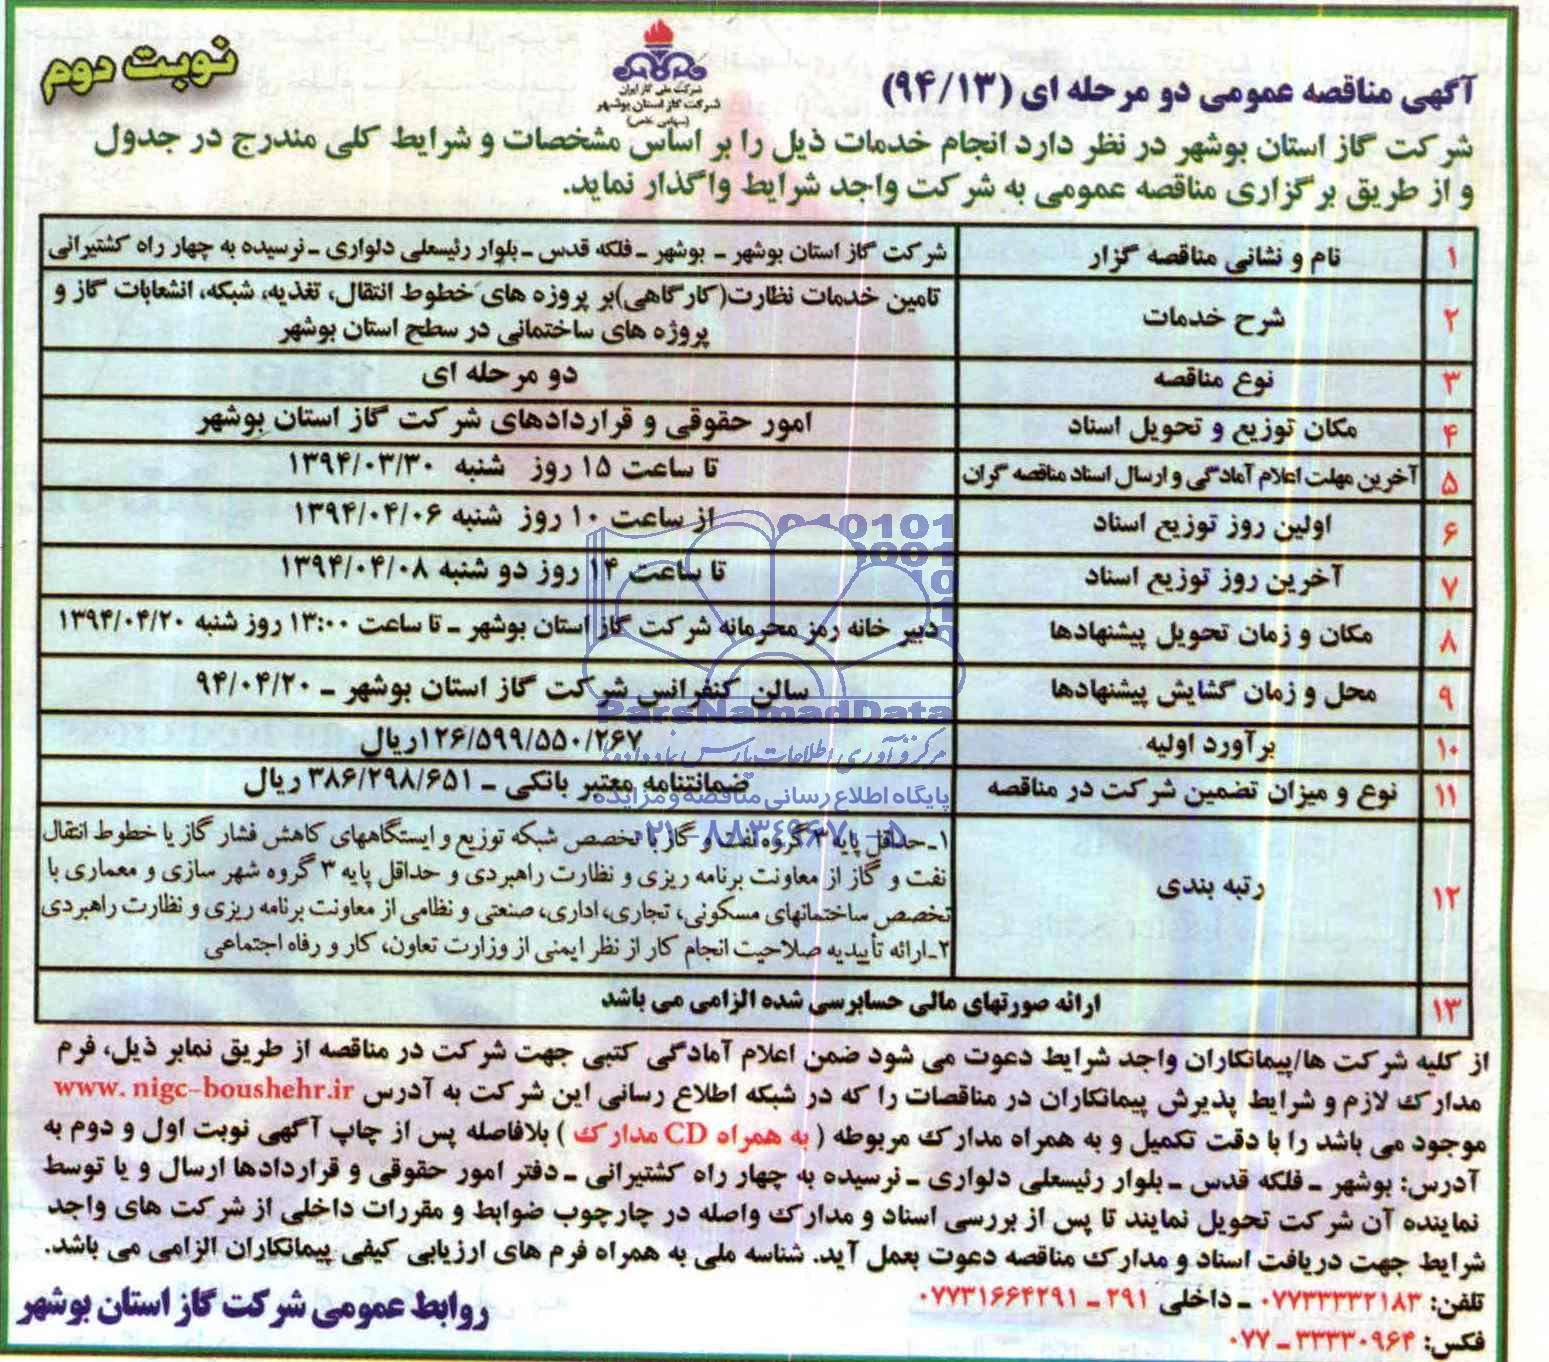 نوبت دوم
شرکت ملی گاز ایران
شرکت گاز استان بوشهر
(سهامی خاص)
آگهی مناقصه عمومی دو مرحله ای (۹۴/۱۳)
شرکت گاز استان بوشهر در نظر دارد انجام خدمات ذیل را بر اساس مشخصات و شرایط کلی مندرج در جدول
و از طریق برگزاری مناقصه عمومی به شرکت واجد شرایط واگذار نماید.
۱ نام و نشانی مناقصه گزار شرکت گاز استان بوشهر ـ بوشهر ـ فلکه قدس ـ بلوار رئیسعلی دلواری ـ نرسیده به چهار راه کشتیرانی
۲ شرح خدمات تامین خدمات نظارت (کارگاهی) بر پروزه های خطوط انتقال، تغذیه، شبکه، انشعابات گاز و
پروژه های ساختمانی در سطح استان بوشهر
۳ نوع مناقصه دو مرحله ای
۴ مکان توزیع و تحویل اسناد امور حقوقی و قراردادهای شرکت گاز استان بوشهر
۵ آخرین مهلت اعلام آمادگی و ارسال اسناد مناقصه گران تا ساعت ۱۵ روز شنبه ۱۳۹۴/۰۳/۳۰
۶ اولین روز توزیع اسناد از ساعت ۱۰ روز شنبه ۱۳۹۴/۰۴/۰۶
۷ آخرین روز توزیع اسناد تا ساعت ۱۴ روز دو شنبه ۱۳۹۴/۰۴/۰۸
۸ مکان و زمان تحویل پیشنهادها دبیر خانه رمز محرمانه شرکت گاز استان بوشهر ـ تا ساعت ۱۳:۰۰ روز شنبه ۱۳۹۴/۰۴/۲۰
۹ محل و زمان گشایش پیشنهادها سالن کنفرانس شرکت گاز استان بوشهر ـ ۹۴/۰۴/۲۰
۱۰ برآورد اولیه ۱۲۶/۵۹۹/۵۵۰/۲۶۷ ریال
۱۱ نوع و میزان تضمین شرکت در مناقصه ضمانتنامه معتبر بانکی ـ ۳۸۶/۲۹۸/۶۵۱ ریال
۱۲ رتبه بندی ۱ـ حداقل پایه ۳ گروه نفت و گاز با تخصص شبکه توزیع و ایستگاههای کاهش فشار گاز یا خطوط انتقال
نفت و گاز از معاونت برنامه ریزی و نظارت راهبردی و حداقل پایه ۳ گروه شهر سازی و معماری با
تخصص ساختمانهای مسکونی، تجاری، اداری، صنعتی و نظامی از معاونت برنامه ریزی و نظارت راهبردی
۲ـ ارائه تأییدیه صلاحیت انجام کار از نظر ایمنی از وزارت تعاون، کار و رفاه اجتماعی
۱۳ ارائه صورتهای مالی حسابرسی شده الزامی می باشد
از کلیه شرکت ها/پیمانکاران واجد شرایط دعوت می شود ضمن اعلام آمادگی کتبی جهت شرکت در مناقصه از طریق نمابر ذیل، فرم
مدارک لازم و شرایط پذیرش پیمانکاران در مناقصات را که در شبکه اطلاع رسانی این شرکت به آدرس www.nigc-boushehr.ir
موجود می باشد را با دقت تکمیل و به همراه مدارک مربوطه ( به همراه CD مدارک ) بلافاصله پس از چاپ آگهی نوبت اول و دوم به
آدرس: بوشهر ـ فلکه قدس ـ بلوار رئیسعلی دلواری ـ نرسیده به چهار راه کشتیرانی ـ دفتر امور حقوقی و قراردادها ارسال و یا توسط
نماینده آن شرکت تحویل نمایند تا پس از بررسی اسناد و مدارک واصله در چارچوب ضوابط و مقررات داخلی از شرکت های واجد
شرایط جهت دریافت اسناد و مدارک مناقصه دعوت بعمل آید. شناسه ملی به همراه فرم های ارزیابی کیفی پیمانکاران الزامی می باشد.
تلفن: ۰۷۷۳۳۳۳۲۱۸۳ ـ داخلی ۲۹۱ ـ ۰۷۷۳۱۶۶۴۲۹۱
فکس: ۳۳۳۳۰۹۶۴ ـ ۰۷۷
روابط عمومی شرکت گاز استان بوشهر
ParsNamadData
مرکز فرآوری اطلاعات پارس نماد داده ها
پایگاه اطلاع رسانی مناقصه و مزایده
۰۲۱-۸۸۳۴۹۶۷۰-۵